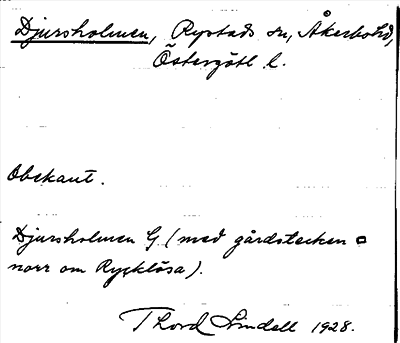 Djursholmen, Rystads sn, Åkerbo hd,
Östergötl l.
Obekant.
Djursholmen G (med gårdstecken
norr om Rycklösa).
Thord Lindell 1928.